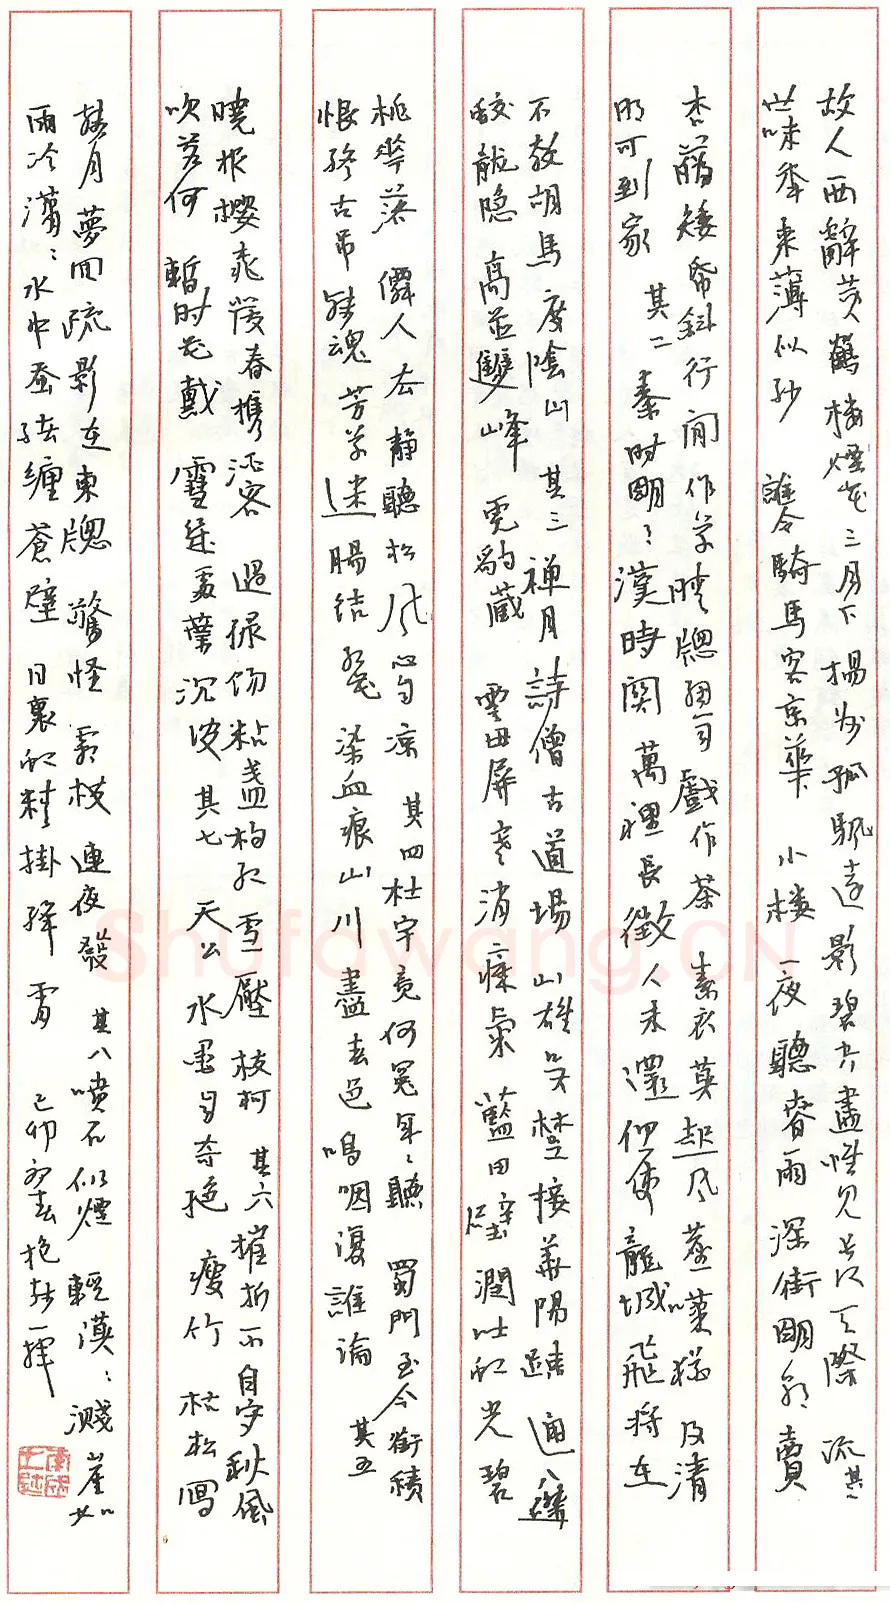 故人西辭黃鶴樓煙花三月下揚州孤帆遠影碧空盡惟見長江天際流其一
世味年來薄似紗誰令騎馬客京華小樓一夜聽春雨深街明朝賣
杏矮紙斜行閒作草晴窗細戲作茶素衣莫起風塵嘆猶及清
明可到家其二秦時明月漢時關萬裡長徵人未還但使龍城飛將在
不教胡馬度陰山其三禪月詩僧古道場山雄吳楚接華陽通八
蛟龍隱高並雙峰豹藏雲母屏寒消瘴氣藍田璧潤吐光碧
桃花落僊人去靜聽松風心自涼其四杜宇竟何冤年年聽蜀門至今銜積
恨終古弔殘魂芳草迷腸結紅花染血痕山川盡春色嗚咽復誰論其五
曉根櫻乖暖春攜酒客過綠餳粘盞杓紅雪壓枝柯其六摧折不自守秋風
吹若何暫時花戴雪幾處葉沉波其七天公水墨自奇絕瘦竹枯松寫
殘月夢回疏影在東窗驚怪霜枝連夜發其八噴石似煙輕漠漠濺崖如
雨冷瀟瀟水中蠶纏蒼壁日裏虹精掛絳霄己卯
Shufawang.CN